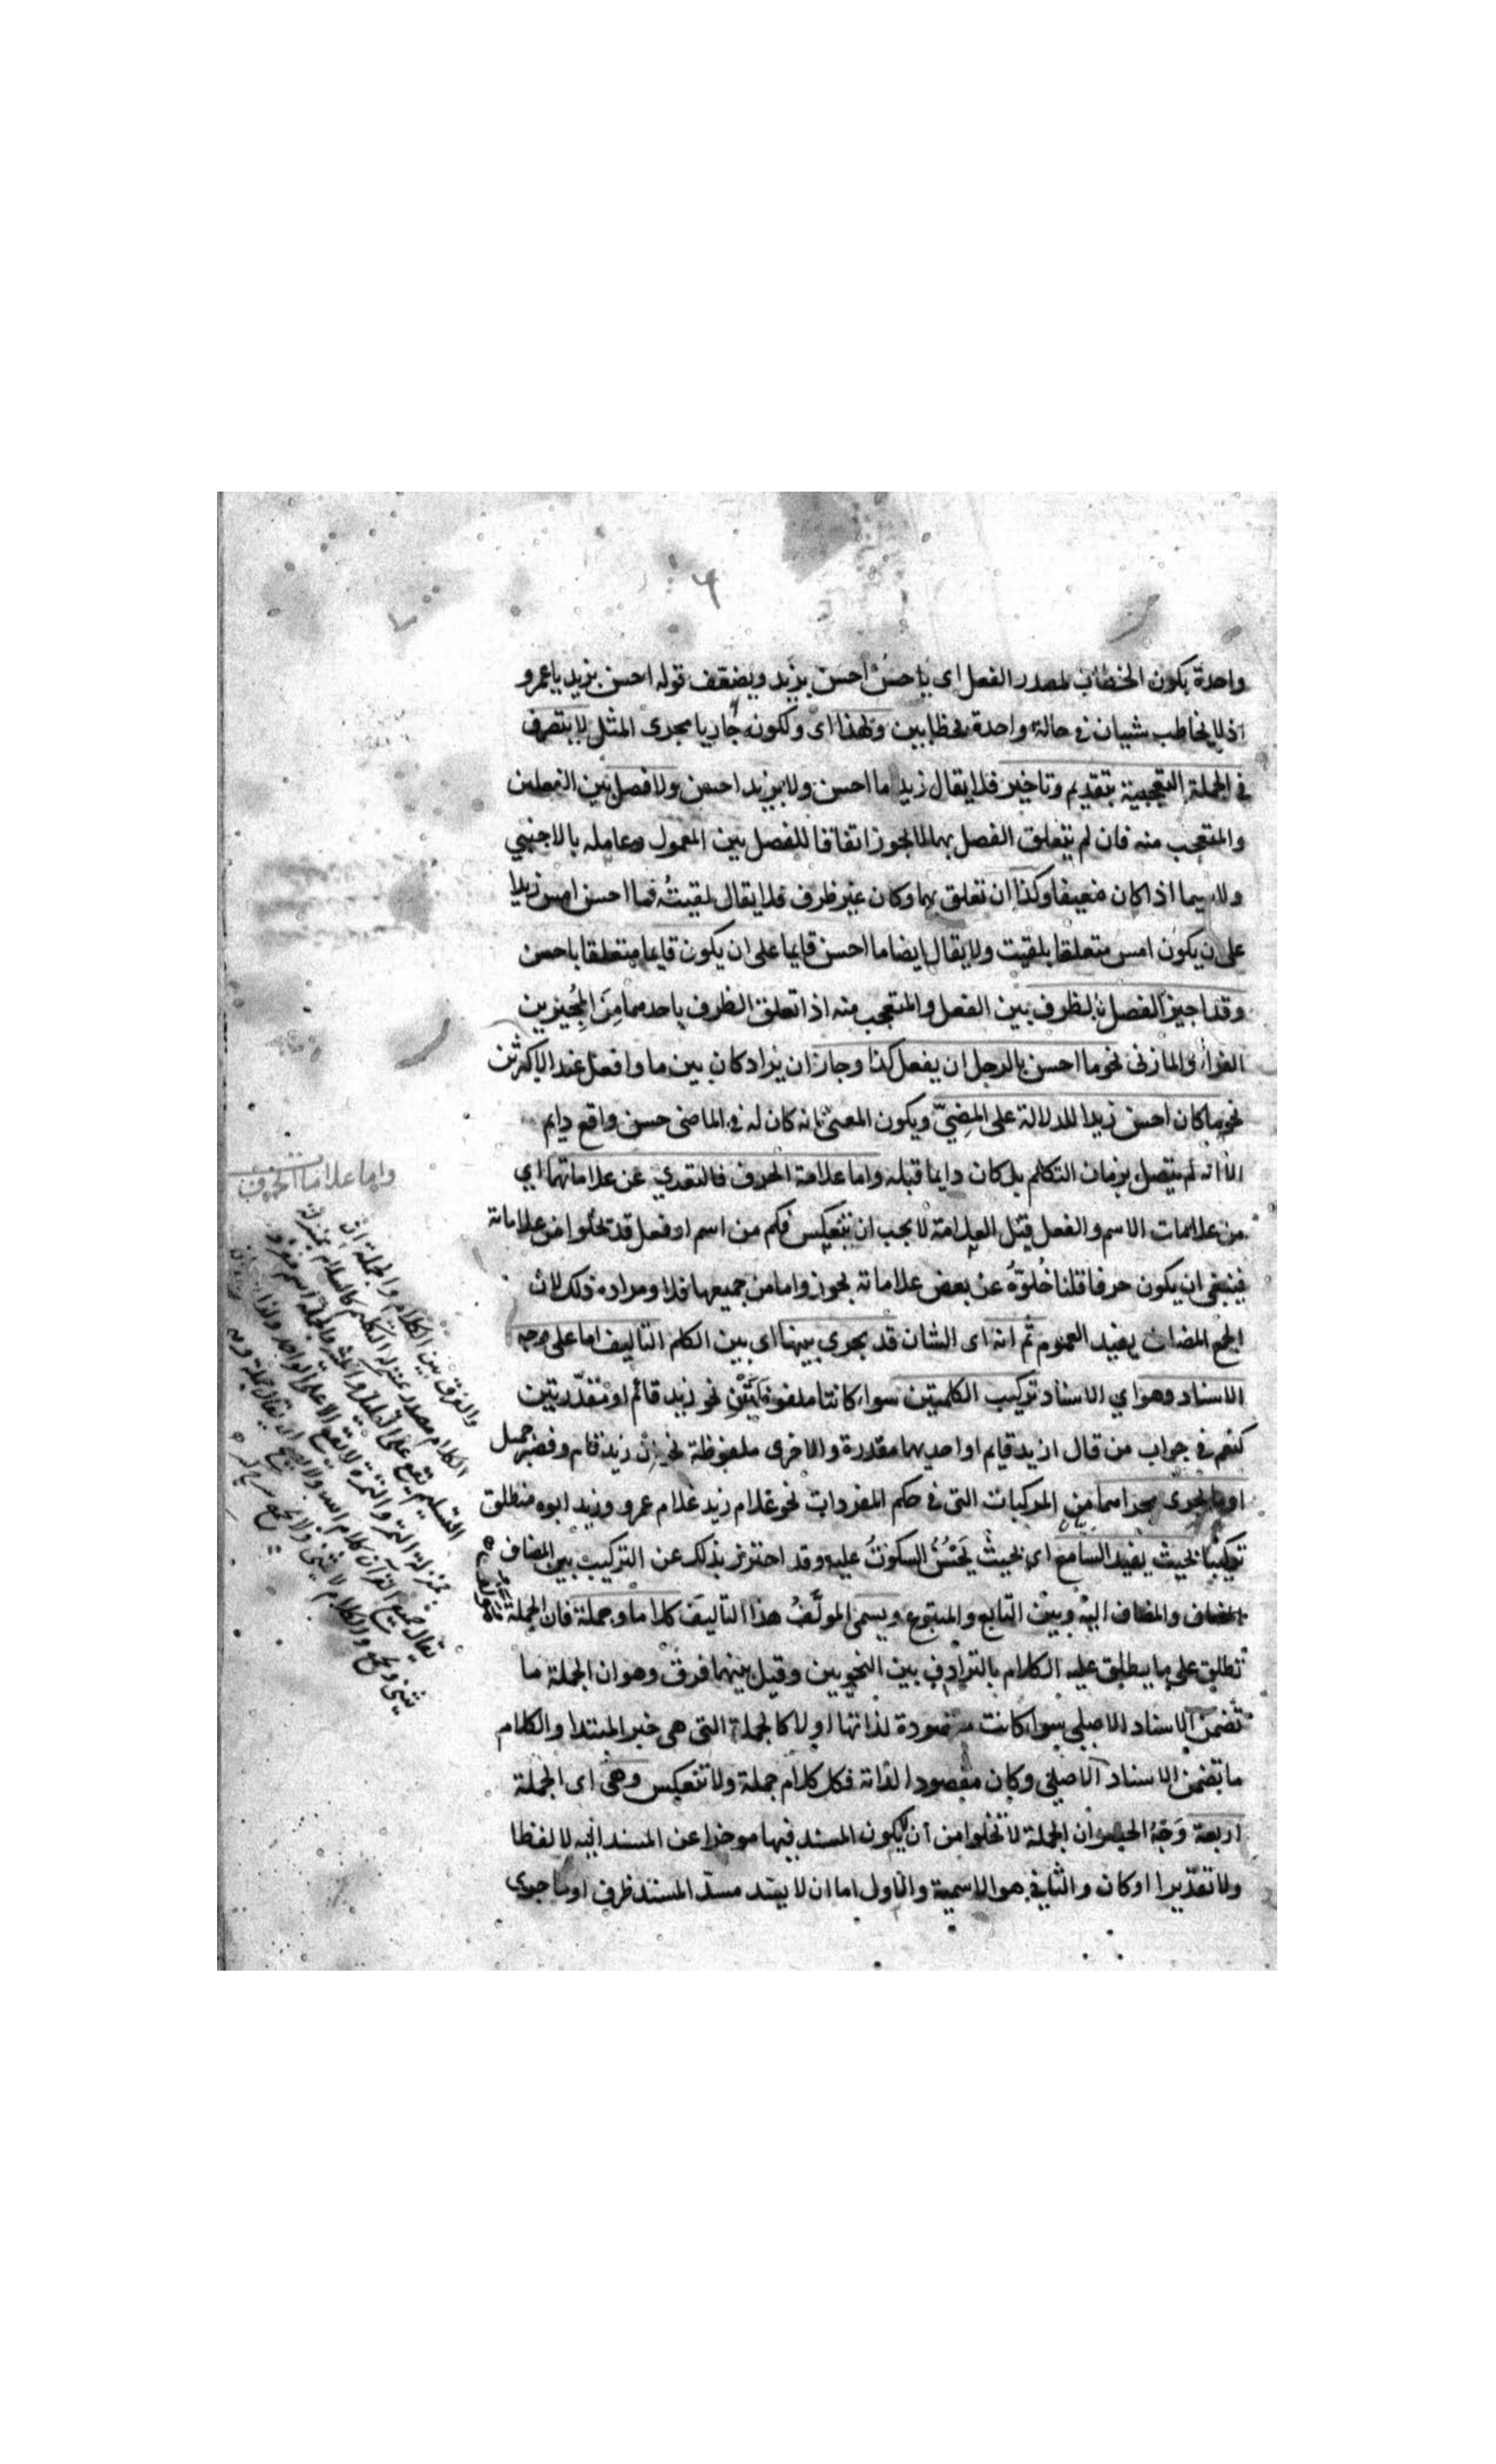 ٦
واحدة يكون الخطاب لمصدر الفعل اى يا حسن احسن بزيد ويضعف قوله احسن بزيد يا عمرو
اذ لا يخاطب شيان فى حالة واحدة بخطابين ولهذا اى ولكونه جاريا مجرى المثل لا يتصرف
فى الجملة التعجبية بتقديم وتاخير فلا يقال زيدا ما احسن ولا بزيد احسن ولا فصل بين الفعلين
والمتعجب منه فان لم يتعلق الفصل بهما لا يجوز اتفاقا للفصل بين المعمول وعامله بالاجنبي
ولا سيما اذا كان ضعيفا وكذا ان تعلق بهما وكان غير ظرف فلا يقال لقيتُه فما احسن امس زيدا
على ان يكون امس متعلقا بلقيت ولا يقال ايضا ما احسن قايما على ان يكون قايما متعلقا باحسن
وقد اجيز الفصل بالظرف بين الفعل والمتعجب منه اذا تعلق الظرف باحدهما مِنَ المجُيزين
الفراء والمازنى نحو ما احسن بالرجل ان يفعل كذا وجاز ان يزاد كان بين ما وافعل عند الاكثرين
نحو ما كان احسن زيدا للدلالة على المضِيّ ويكون المعنى انه كان له فى الماضى حسن واقع دايم
الا انه لم يتصل بزمان التكلم بل كان دايما قبله واما علامة الحرف فالتعري عن علاماتهما اي
من علامات الاسم والفعل قيل العلامة لا يجب ان تنعكس فكم من اسم او فعل قد تخلوا من علاماته
فينبغى ان يكون حرفا قلنا خُلوّهُ عن بعض علاماته يجوز واما من جميعها فلا ومراده ذلك لان
الجمع المضاف يفيد العموم ثم انه اى الشان قد يجرى بينها اى بين الكلم التاليف اما على وجه
الاسناد وهو اي الاسناد تركيب الكلمتين سواء كانتا ملفوظتَيْنِ نحو زيد قائم او مقدّرتين
كنعم فى جواب من قال ازيد قايم او احديهما مقدرة والاخرى ملفوظة نحو اِنْ زيد قام و جميل
او ما يجرى مجراهما من المركبات التى فى حكم المفردات نحو غلام زيد غلام عمرو وزيد ابوه منطلق
تركيبًا بحيث يفيد السامع اى بحيث يَحْسُنُ السكوتُ عليه وقد احترز بذلك عن التركيب بين المضاف
المضاف والمضاف اليه وبين التابع والمتبوع ويسمى المولَّفُ هذا التاليفَ كلاما وجملة فان الجملة
تطلق على ما يطلق عليه الكلام بالترادف بين النحويين وقيل بينهما فرق وهو ان الجملة ما
تضمن الاسناد الاصلى سواء كانت مقصودة لذاتها او لا كالجملة التى هى خبر المبتدا والكلام
ما تضمن الاسناد الاصلى وكان مقصودا لذاته فكل كلام جملة ولا تنعكس وهى اى الجملة
اربعة وَجْهُ الحصر ان الجملة لا تخلوا من ان يكون المسند فيها موخرا عن المسند اليه لا لفظا
ولا تقديرا او كان والثانى هو الاسمية والاول اما ان لا يسد مسدّ المسند ظرف او ما جرى
واما علامات الحرف
والفرق بين الكلام والجملة ان
الكلام مصدر بمنزلة التكليم كالسلام بمنزلة
التسليم يقع على القليل والكثير والجملة اسم مفرد
بمنزلة التمر والتمرة لا يقع الا على الواحد ولذا
يقال جميع القرآن كلام الله ولا يصح ان يقال جملة
يثنى ويجمع والكلام لا يثنى ولا يجمع